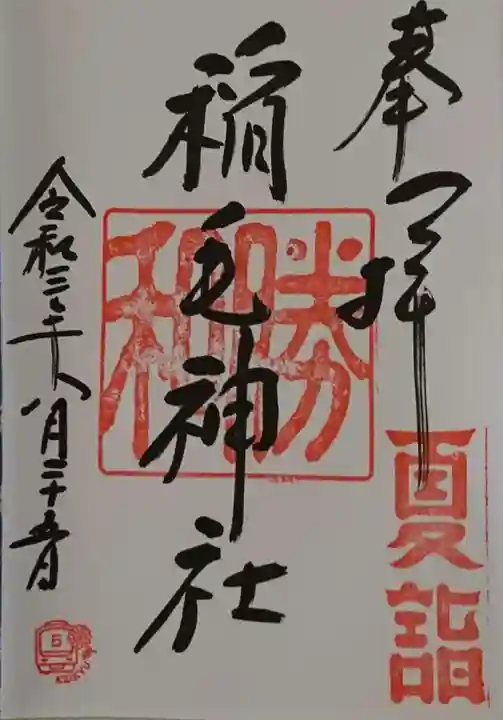 奉拝
夏詣
稲毛神社
勝和
令和三年八月二十五日